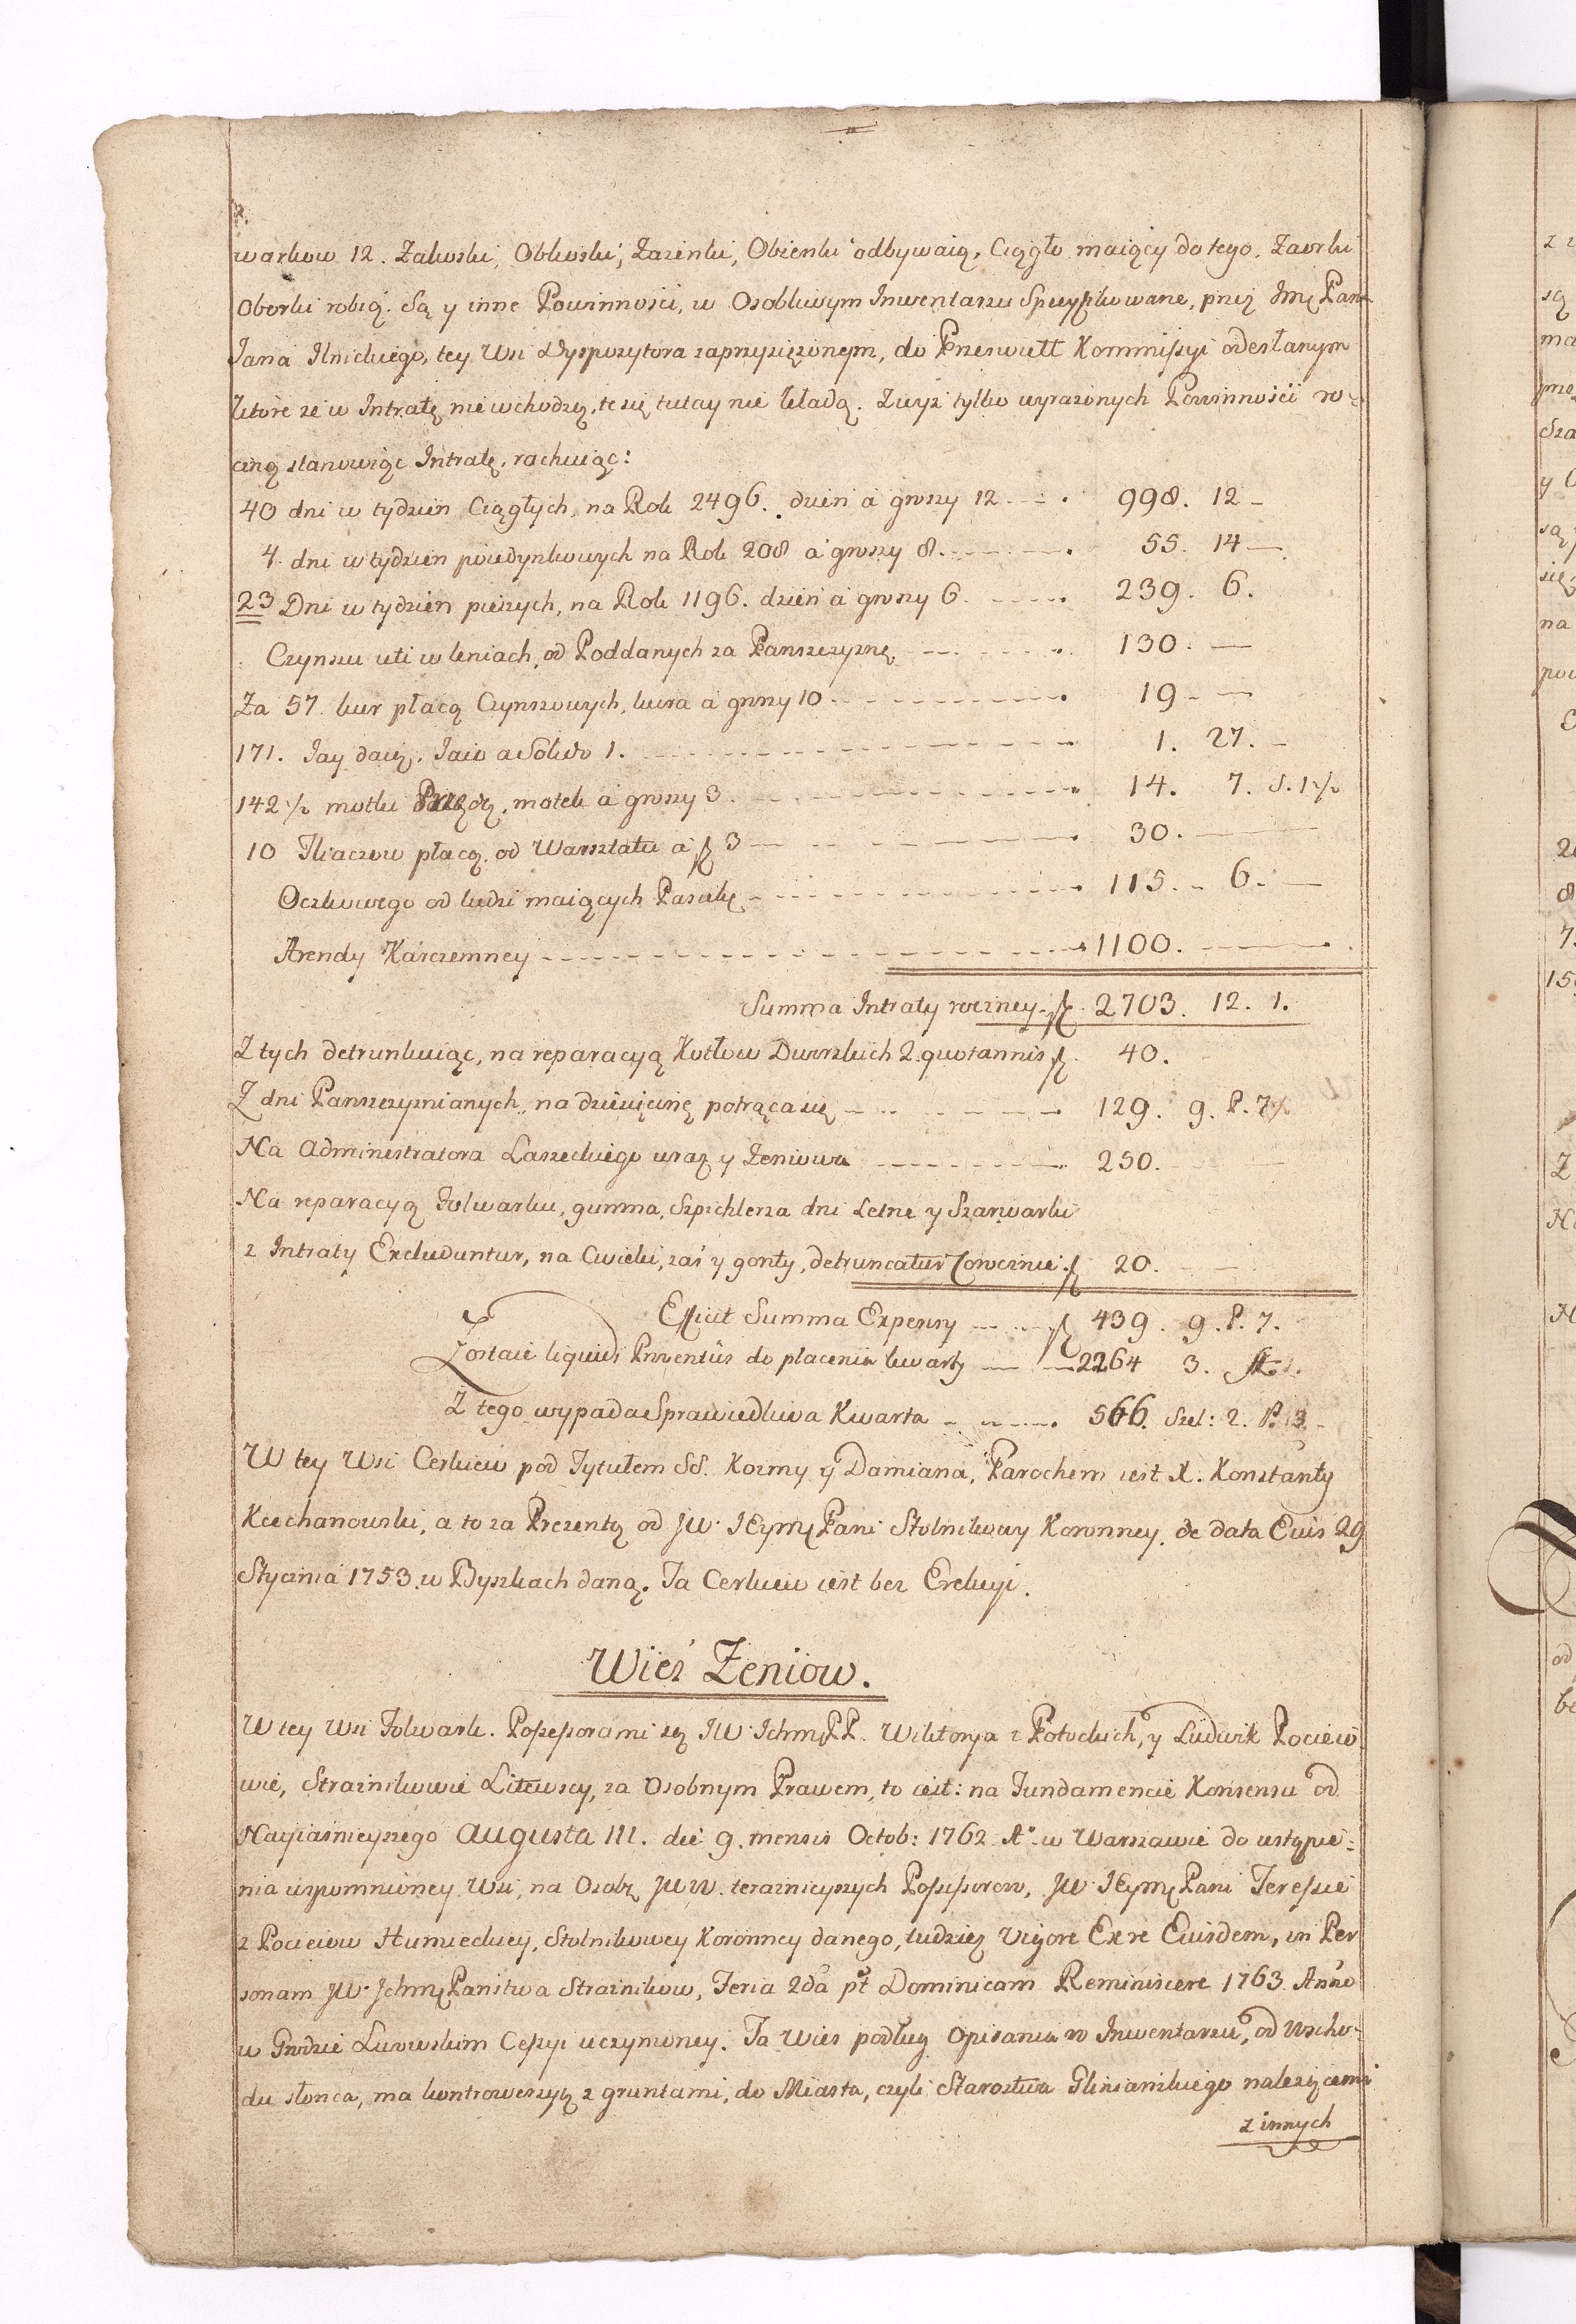 warkow 12. Zakoski, Obkoski, Zazenki, Obzenki odbywaią, Ciągło maiący do tego, Zaorki
Oborki robią. Są y inne Powinności, w Osobliwym Inwentarzu Specyfikowane, przez Jmć Pana
Jana Ilnickiego, tey Wsi Dyspozytora zaprzysięzonem, do Przeswiett Kommissyi odesłanym
ktore ze w Intratę nie wchodzą, te się tutay nie kładą. Zwyz tylko wyrazonych Powinności ro-
czną stanowiąc Intratę, rachuiąc:
40 dni w tydzien Ciągłych, na Rok 2496. dzień á groszy 12 --- . 998. 12 -
4. dni w tydzien poiedynkowych na Rok 208 á groszy 8. ------- . 55. 14 -
23 Dni w tydzien pieszych, na Rok 1196. dzień á groszy 6 ------ 239. 6.
Czynszu uti w leniach, od Poddanych za Panszczyznę --------- 130. -
Za 57. kur płacą Czynszowych, kura á groszy 10 ------------ 19 - -
171. Jay daią. Jaio a Soldo 1. ------------------ 1. 27. -
142 ½ motki Przędą, motek á groszy 3. ------------ 14. 7. S. 1 ½
10 Tkaczow płacą, od Warsztatu á f 3 ------------ 30. -
Oczkowego od ludzi maiących Pasieki ------------ 115. - 6. -
Arendy Karczemney ------------------ 1100. -
Summa Intraty roczney. f. 2703. 12. 1.
Z tych detrunkuiąc, na reparacyą Kotłow Dworskich 2. quotannis f. 40.
Z dni Panszczyznianych, na dziesięcinę potrąca się --------- 129. 9. P. 7½
Na Administratora Laszeckiego wraz y Zeniowa ---------- 250.
Na reparacyą Folwarku, gumna, Szpichlerza dni Letne y Szarwarki
z Intraty Excluduntur, na Cwieki, zaś y gonty, detruncatur corocznie. f 20.
Efficit Summa Expensy ------ f 439. 9. P. 7.
Zostaie liquidi Proventus do płacenia kwarty --- 2264 3.
Z tego wypada Sprawiedliwa Kwarta - ---- . 566. Szel: 2. P. 3.
W tey Wsi Cerkiew pod Tytułem SS. Kozmy y Damiana, Parochem iest X. Konstanty
Kcechanowski, a to za Prezentą od JW. JEymć Pani Stolnikowy Koronney, de data Eius 29
Stycznia 1753. w Byszkach daną. Ta Cerkiew iest bez Erekcyi.
Wieś Zeniow.
W tey Wsi Folwark. Possessorami są JW Ichmć PP. Wiktorya z Potockich, y Ludwik Pociew
wie, Straznikowie Litewscy, za Osobnym Prawem, to iest: na Fundamencie Konsensu od
Nayiaśnieyszego Augusta III. die 9. mensis Octob: 1762 Aº. w Warszawie do ustąpie:
nia wspomnioney Wsi, na Osobę JWW. teraznieyszych Possessorow, JW. JEymć Pani Teressie
z Pocieiow Humieckiey, Stolnikowey Koronney danego, tudziez vigore Exre Eiusdem, in Per
sonam JW. Ichmć Panstwa Straznikow, Feria 2dâ pt Dominicam Reminiscere 1763. Anno
w Grodzie Lwowskim Cessyi uczynioney. Ta Wies podług Opisania w Inwentarzu, od Wscho-
du słonca, ma kontrowersyą z gruntami, do Miasta, czyli Starostwa Glinianskiego nalezącemi
z innych